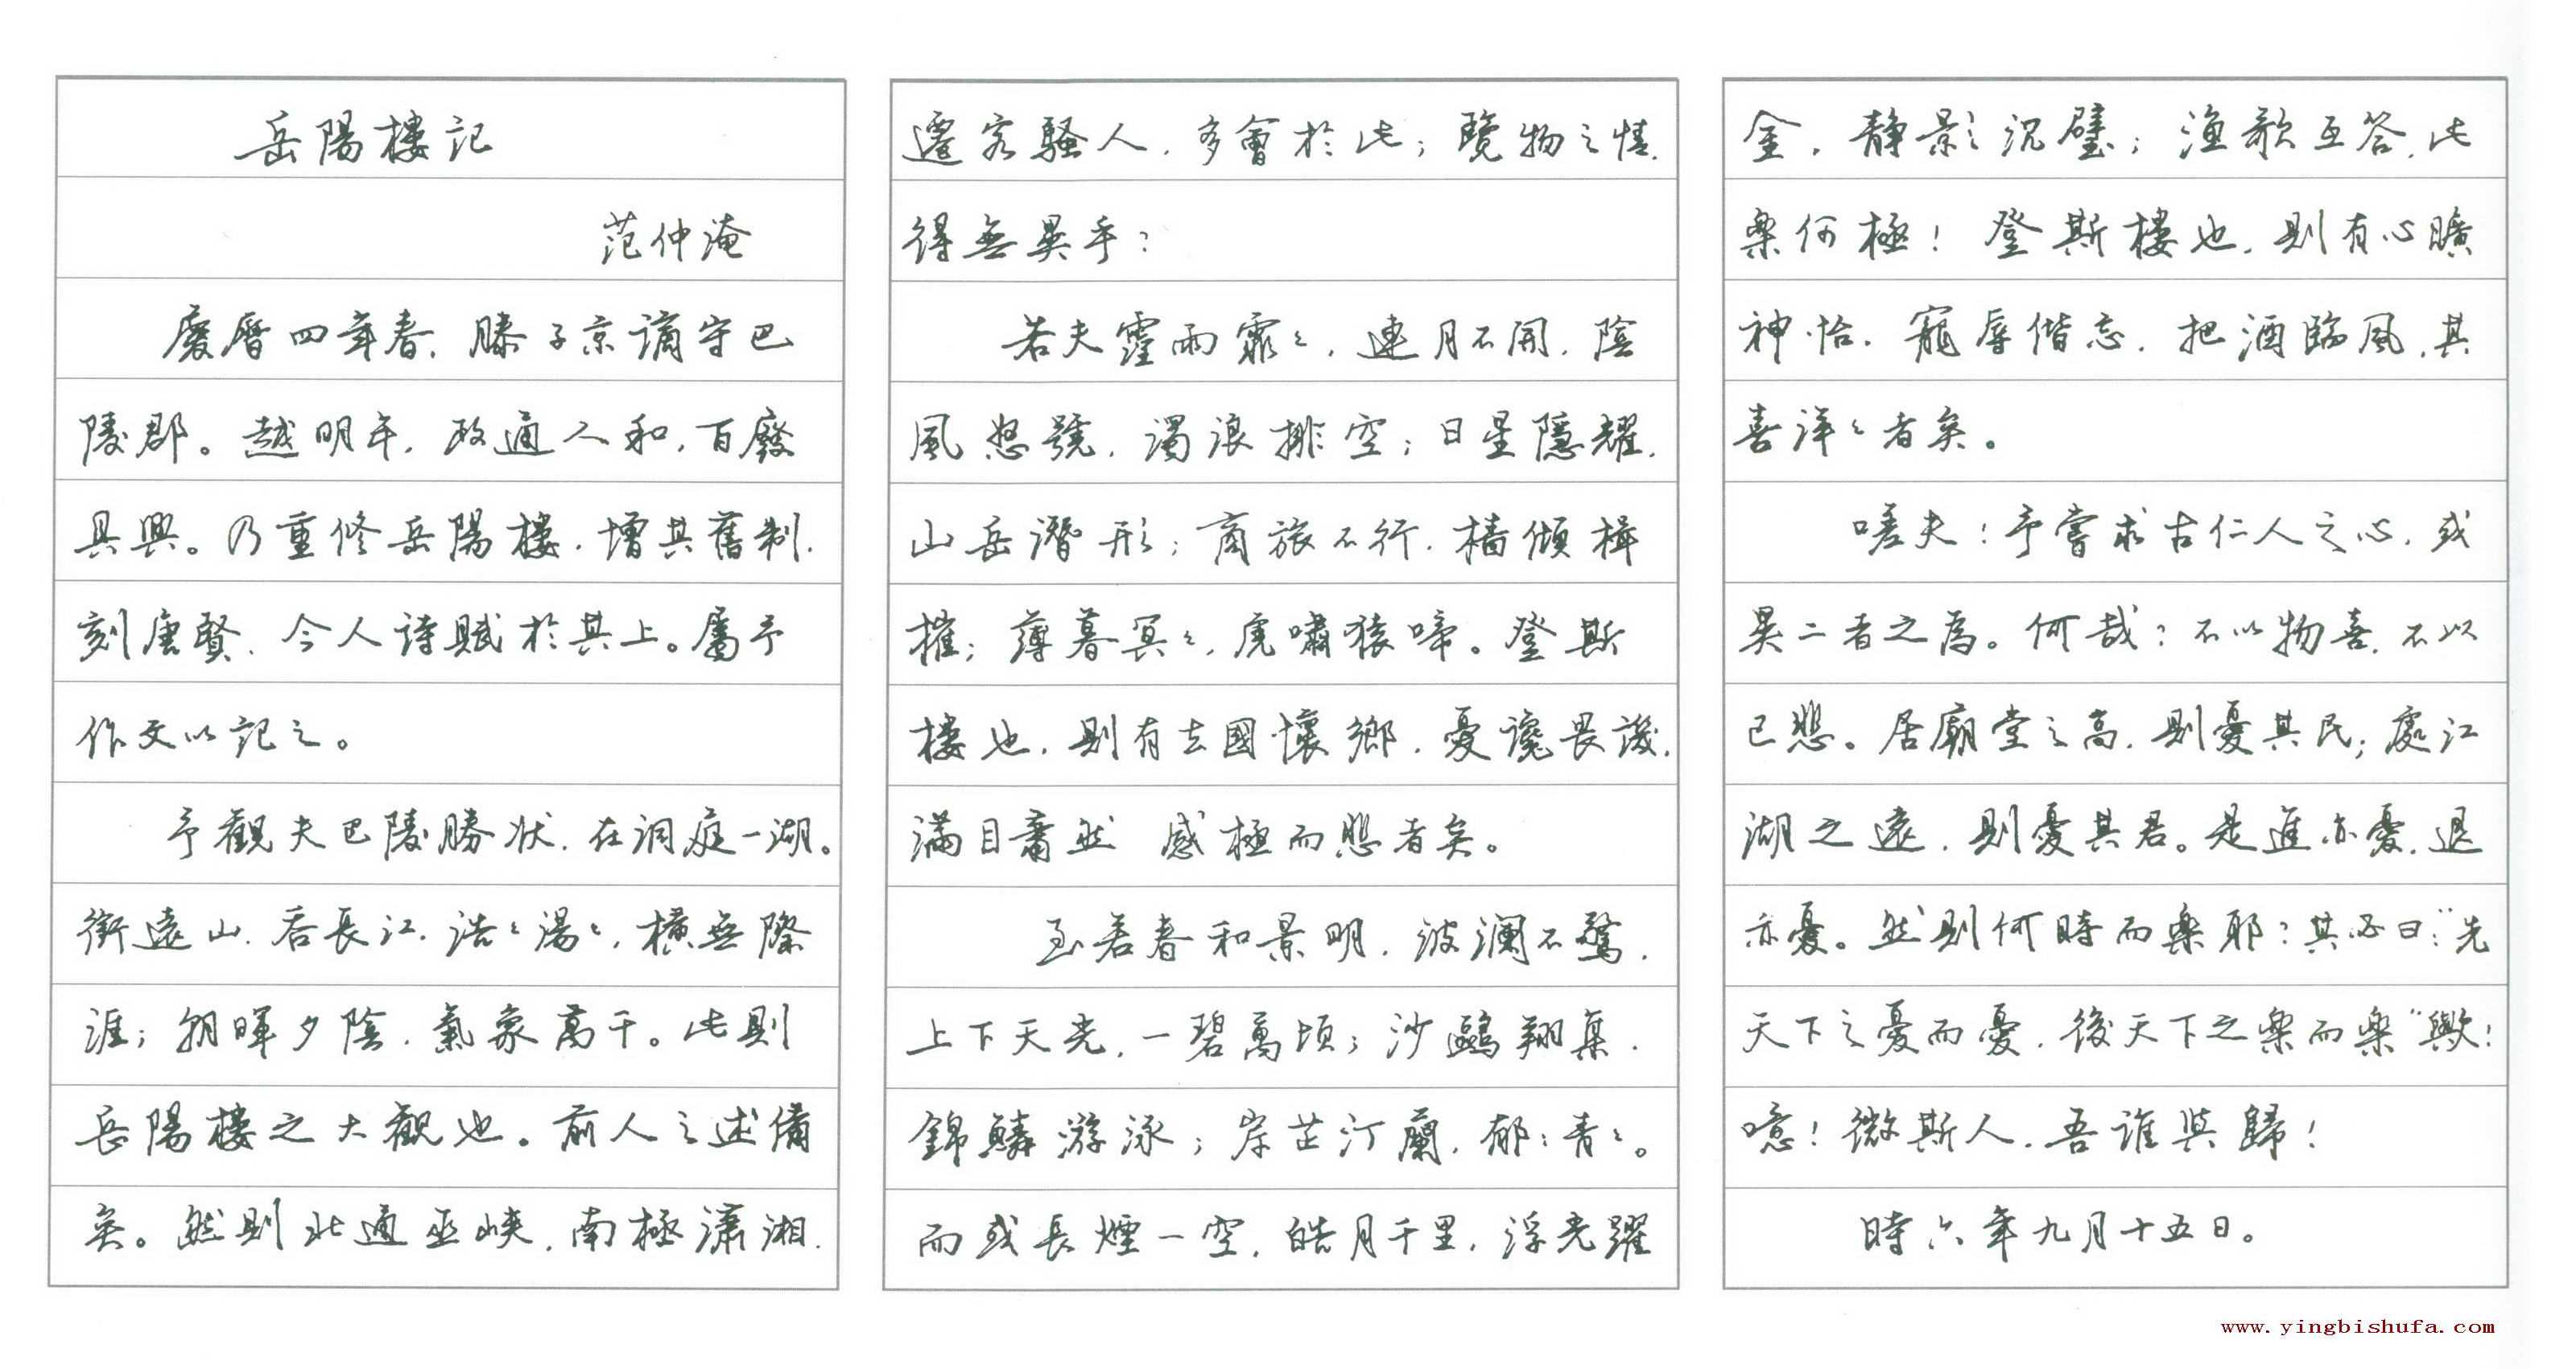 岳陽樓記
范仲淹
慶曆四年春，滕子京謫守巴
陵郡。越明年，政通人和，百廢
具興。乃重修岳陽樓，增其舊制，
刻唐賢、今人詩賦於其上。屬予
作文以記之。
予觀夫巴陵勝狀，在洞庭一湖。
銜遠山，吞長江，浩々湯々，橫無際
涯；朝暉夕陰，氣象萬千。此則
岳陽樓之大觀也。前人之述備
矣。然則北通巫峽，南極瀟湘，
遷客騷人，多會於此；覽物之情，
得無異乎？
若夫霪雨霏々，連月不開，陰
風怒號，濁浪排空；日星隱耀，
山岳潛形；商旅不行，檣傾楫
摧；薄暮冥々，虎嘯猿啼。登斯
樓也，則有去國懷鄉，憂讒畏譏，
滿目蕭然 感極而悲者矣。
至若春和景明，波瀾不驚，
上下天光，一碧萬頃；沙鷗翔集，
錦鱗游泳；岸芷汀蘭，郁々青々。
而或長煙一空，皓月千里，浮光躍
金，靜影沉璧；漁歌互答，此
樂何極！登斯樓也，則有心曠
神怡，寵辱偕忘，把酒臨風，其
喜洋々者矣。
嗟夫！予嘗求古仁人之心，或
異二者之為。何哉？不以物喜，不以
已悲。居廟堂之高，則憂其民；處江
湖之遠，則憂其君。是進亦憂，退
亦憂。然則何時而樂耶？其必曰：“先
天下之憂而憂，後天下之樂而樂”歟！
噫！微斯人，吾誰與歸！
時六年九月十五日。
www.yingbishufa.com